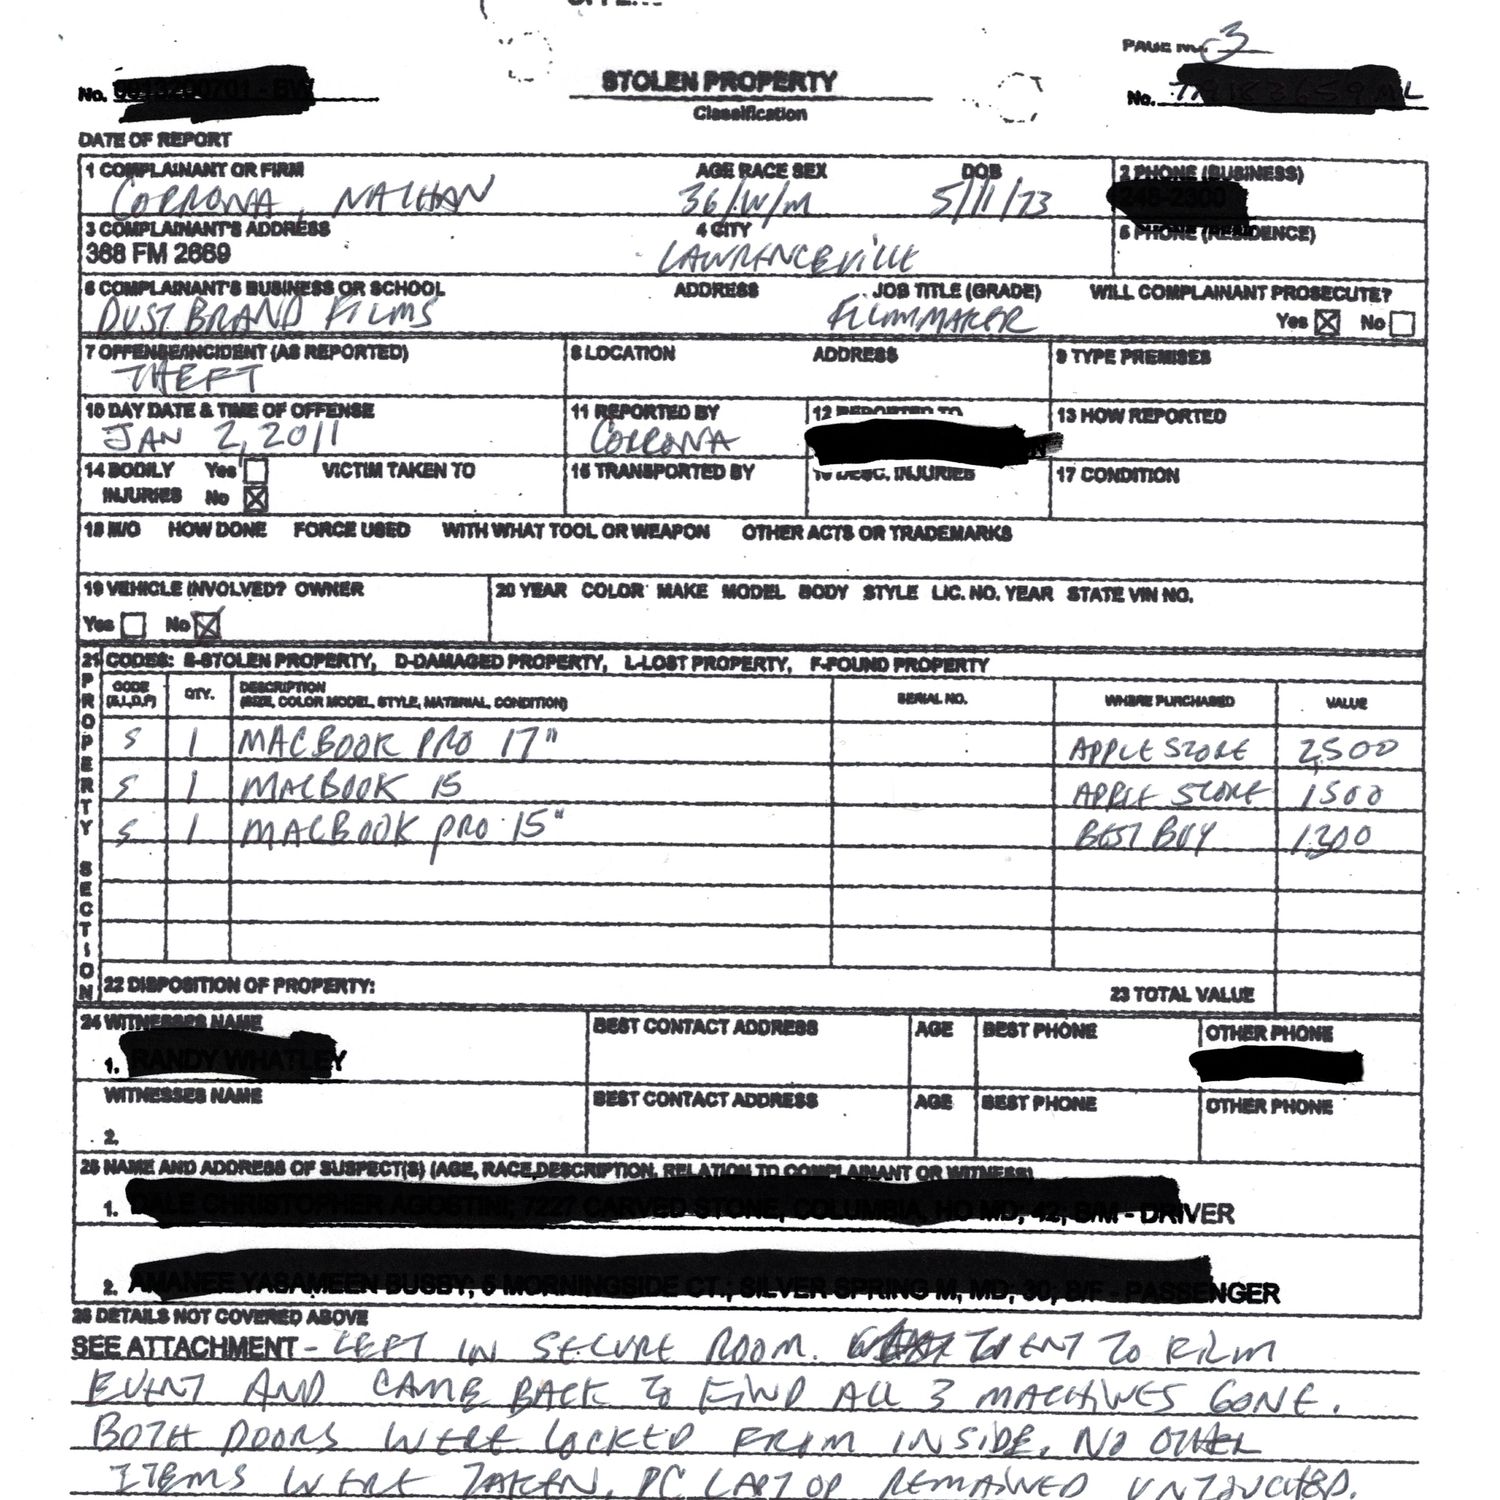 PAGE No. 3
STOLEN PROPERTY
Classification
No. No.
DATE OF REPORT
1 COMPLAINANT OR FIRM AGE RACE SEX DOB 2 PHONE (BUSINESS)
CORRONA, NATHAN 36/W/M 5/11/73
3 COMPLAINANT'S ADDRESS 4 CITY 5 PHONE (RESIDENCE)
368 FM 2669 LAWRENCEVILLE
6 COMPLAINANT'S BUSINESS OR SCHOOL ADDRESS JOB TITLE (GRADE) WILL COMPLAINANT PROSECUTE?
DUST BRAND FILMS FILMMAKER Yes ☒ No ☐
7 OFFENSE/INCIDENT (AS REPORTED) 8 LOCATION ADDRESS 9 TYPE PREMISES
THEFT
10 DAY DATE & TIME OF OFFENSE 11 REPORTED BY 12 REPORTED TO 13 HOW REPORTED
JAN 2, 2011 CORRONA
14 BODILY Yes ☐ VICTIM TAKEN TO 15 TRANSPORTED BY 16 DESC. INJURIES 17 CONDITION
INJURIES No ☒
18 M/O HOW DONE FORCE USED WITH WHAT TOOL OR WEAPON OTHER ACTS OR TRADEMARKS
19 VEHICLE INVOLVED? OWNER 20 YEAR COLOR MAKE MODEL BODY STYLE LIC. NO. YEAR STATE VIN NO.
Yes ☐ No ☒
21 CODES: S-STOLEN PROPERTY, D-DAMAGED PROPERTY, L-LOST PROPERTY, F-FOUND PROPERTY
PROPERTY SECTION
CODE QTY. DESCRIPTION SERIAL NO. WHERE PURCHASED VALUE
(S,L,D,F) (SIZE, COLOR MODEL, STYLE, MATERIAL, CONDITION)
S 1 MACBOOK PRO 17" APPLE STORE 2,500
S 1 MACBOOK 15 APPLE STORE 1500
S 1 MACBOOK PRO 15" BEST BUY 1,300
22 DISPOSITION OF PROPERTY: 23 TOTAL VALUE
24 WITNESSES NAME BEST CONTACT ADDRESS AGE BEST PHONE OTHER PHONE
1.
WITNESSES NAME BEST CONTACT ADDRESS AGE BEST PHONE OTHER PHONE
2.
25 NAME AND ADDRESS OF SUSPECT(S) (AGE, RACE, DESCRIPTION, RELATION TO COMPLAINANT OR WITNESS)
1. DRIVER
2. PASSENGER
26 DETAILS NOT COVERED ABOVE
SEE ATTACHMENT - LEFT IN SECURE ROOM. WENT TO FILM
EVENT AND CAME BACK TO FIND ALL 3 MACHINES GONE.
BOTH DOORS WERE LOCKED FROM INSIDE. NO OTHER
ITEMS WERE TAKEN. PC LAPTOP REMAINED UNTOUCHED.